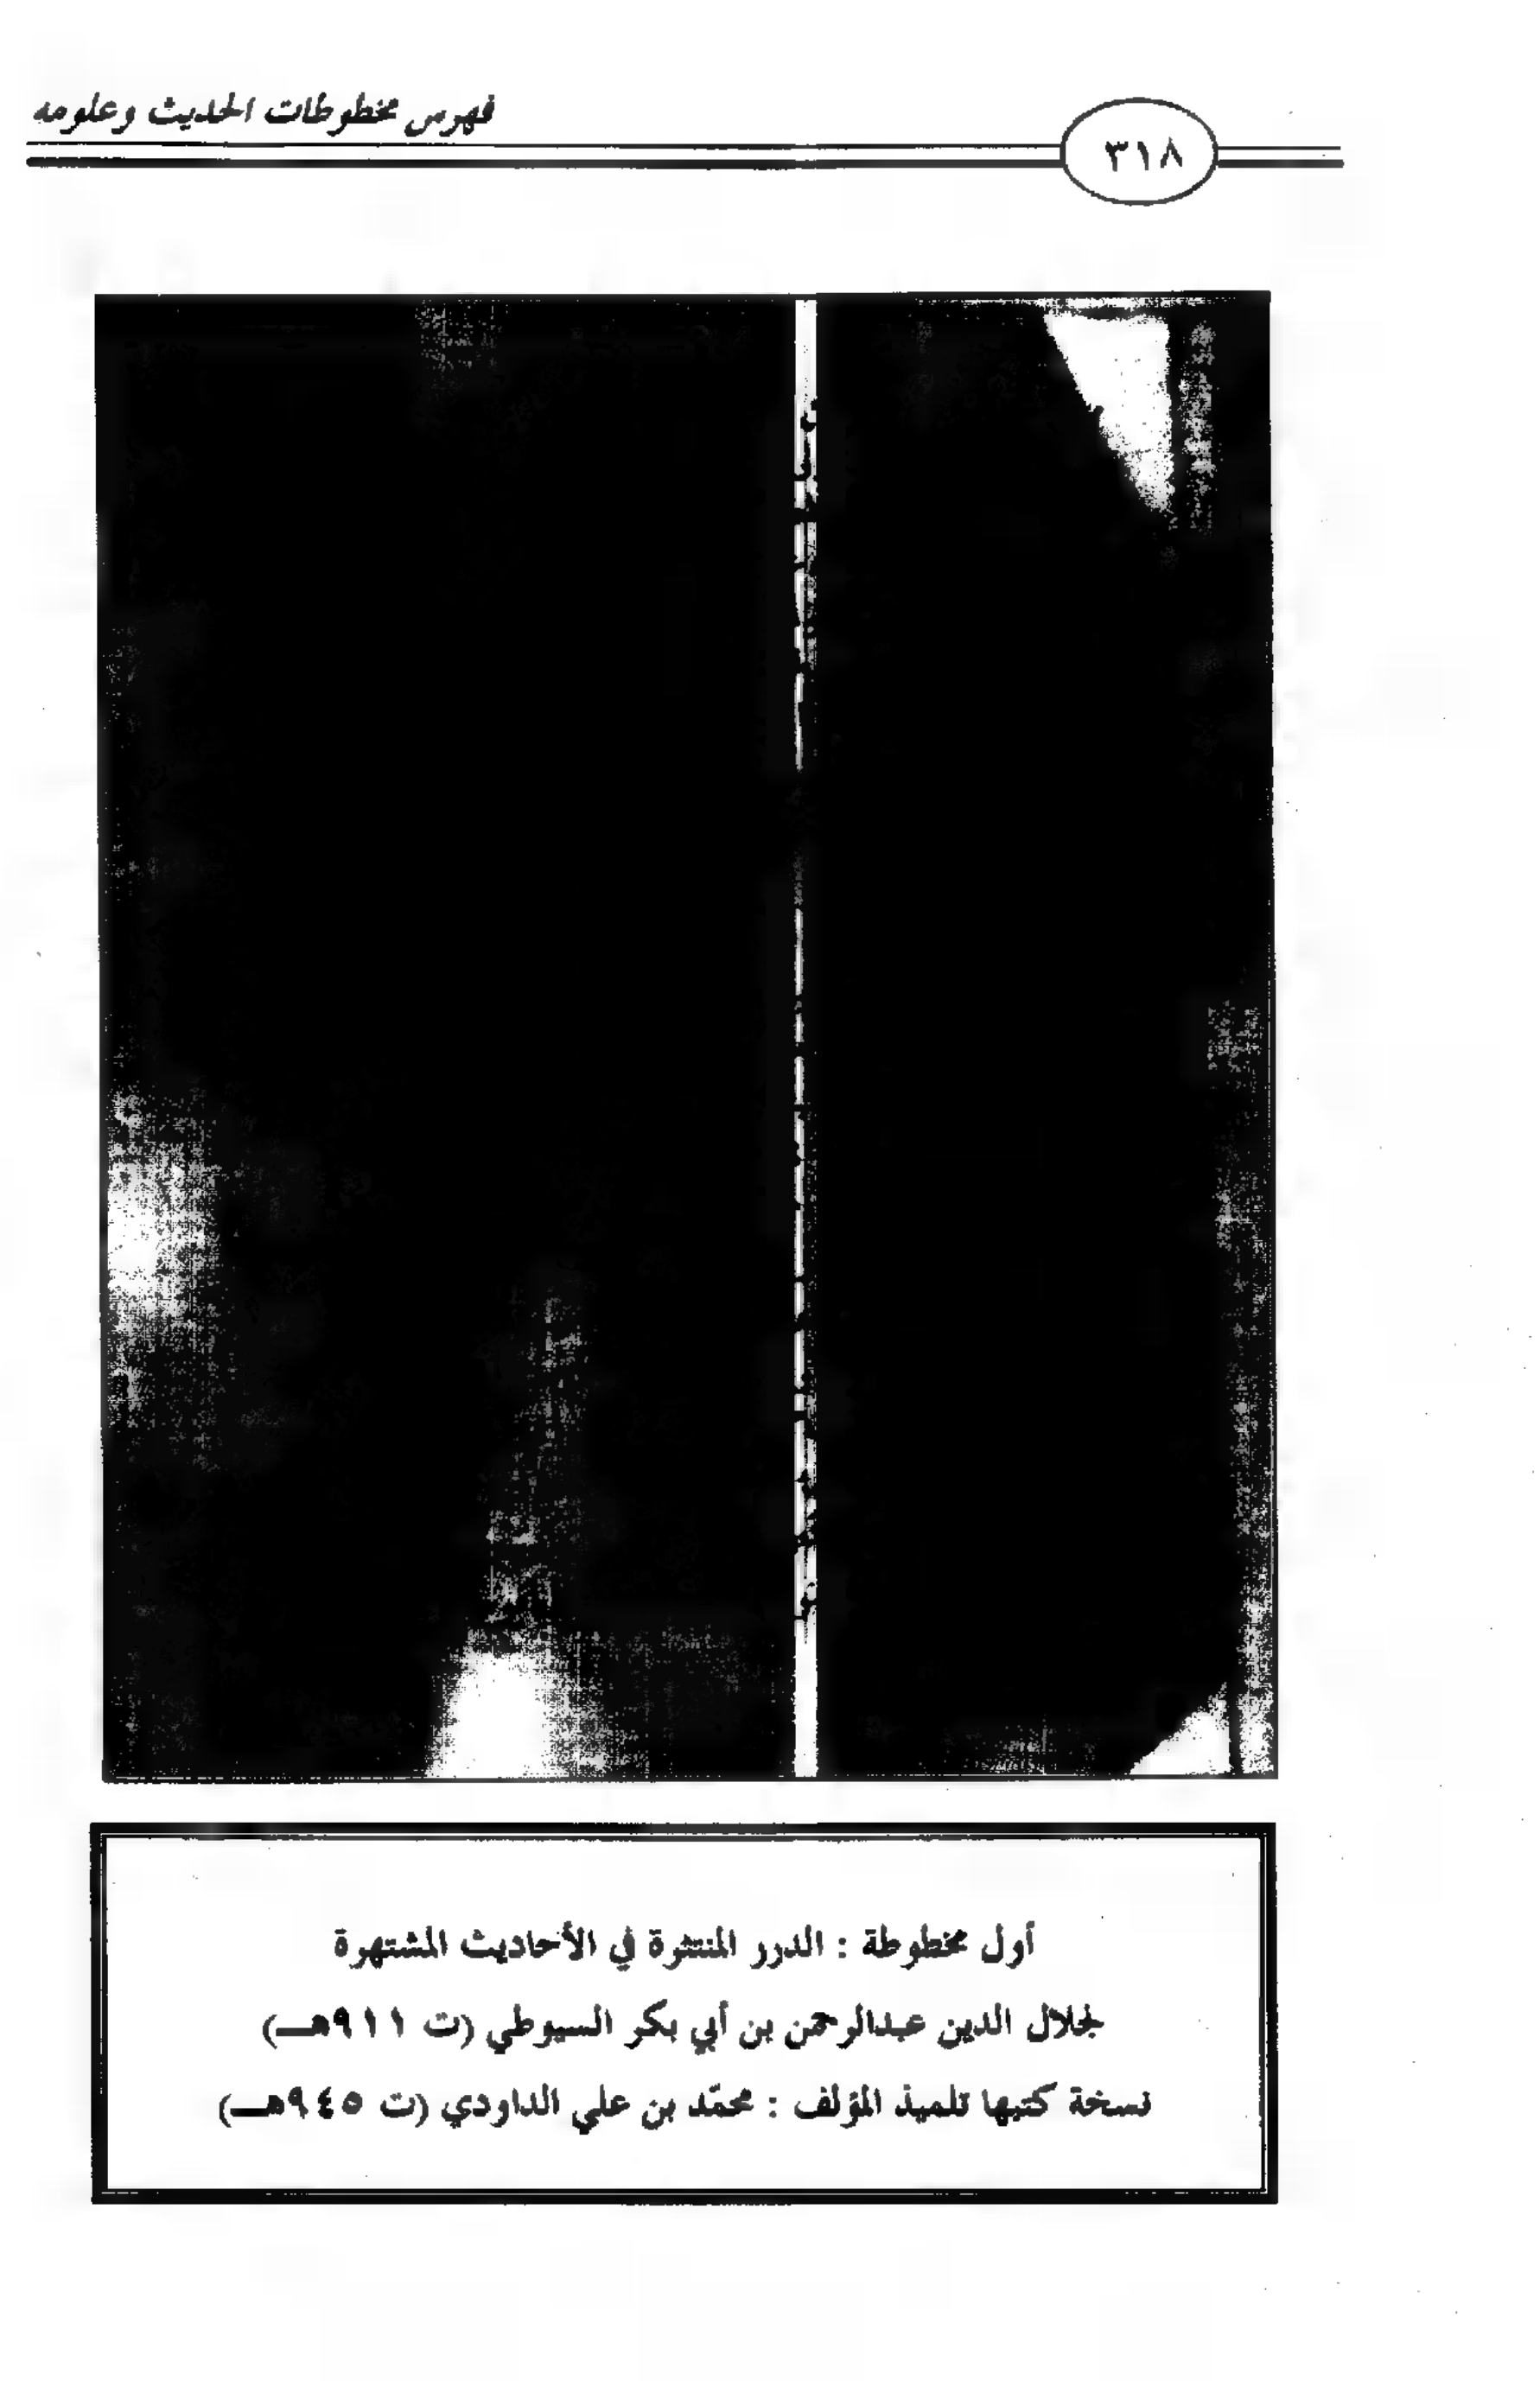 فهرس مخطوطات الحديث وعلومه
٣١٨
أول مخطوطة : الدرر المنتثرة في الأحاديث المشتهرة
لجلال الدين عبدالرحمن بن أبي بكر السيوطي (ت ٩١١هـ)
نسخة كتبها تلميذ المؤلف : محمّد بن علي الداودي (ت ٩٤٥هـ)